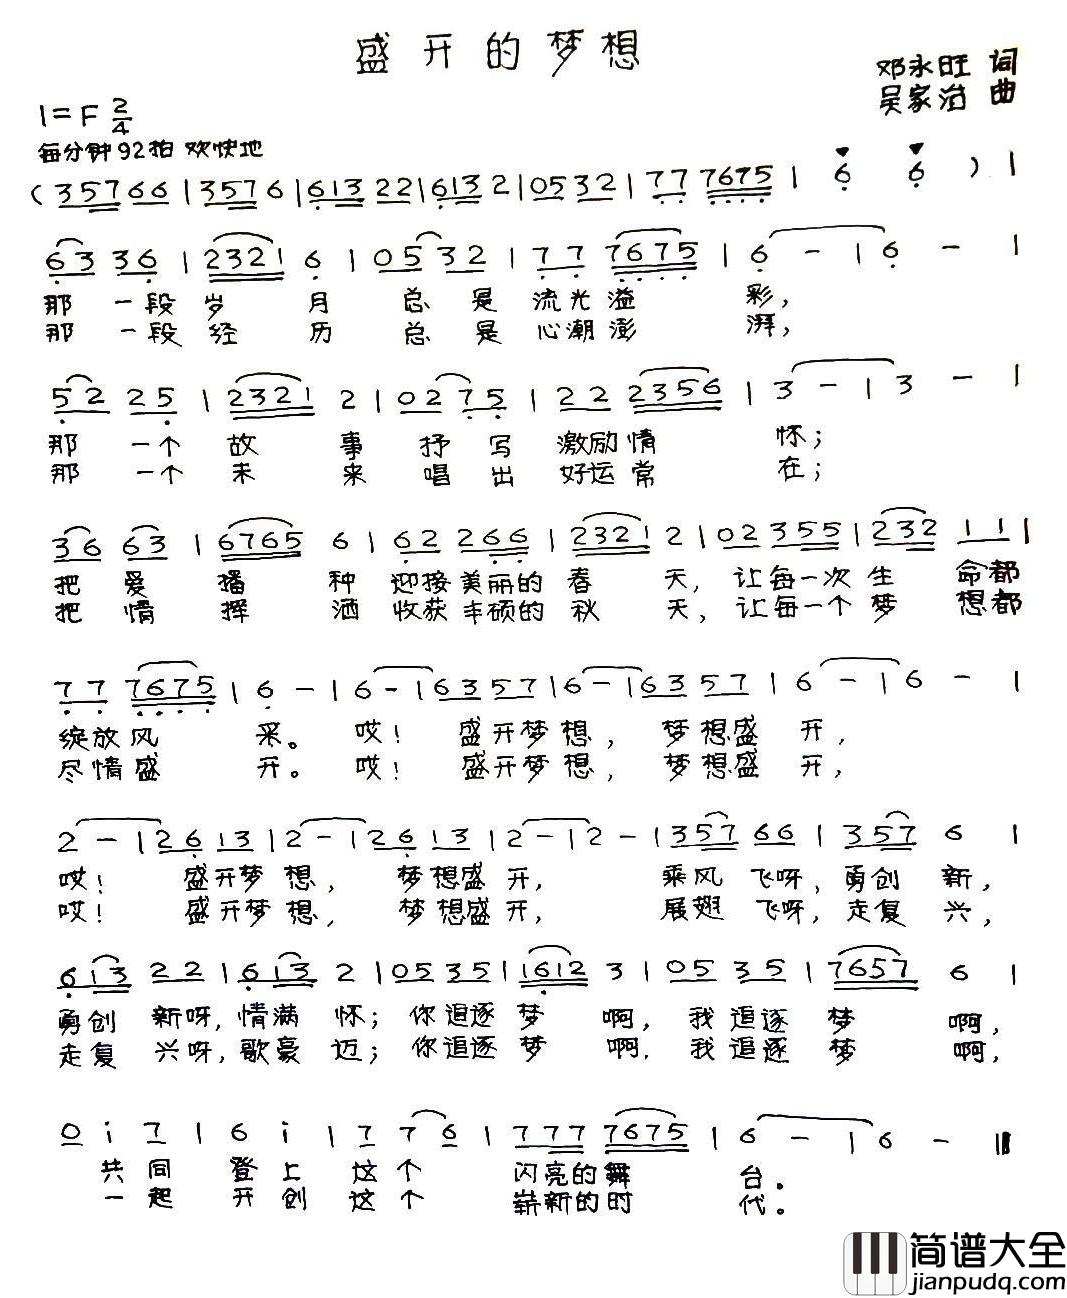 盛开的梦想
邓永旺 词
吴家治 曲
1=F 2/4
每分钟92拍 欢快地
(35766|3576|61322|6132|0532|777675|6 6)|
6336|23216|0532|777675|6-|6-|
那一段岁月总是流光溢彩,
那一段经历总是心潮澎湃,
5225|23212|0275|222356|3-|3-|
那一个故事抒写激励情怀;
那一个未来唱出好运常在;
3663|67656|62266|23212|02355|23211|
把爱播种迎接美丽的春天,让每一次生命都
把情挥洒收获丰硕的秋天,让每一个梦想都
777675|6-|6-|6357|6-|6357|6-|6-|
绽放风采。哎!盛开梦想,梦想盛开,
尽情盛开。哎!盛开梦想,梦想盛开,
2-|2613|2-|2613|2-|2-|35766|3576|
哎!盛开梦想,梦想盛开,乘风飞呀,勇创新,
哎!盛开梦想,梦想盛开,展翅飞呀,走复兴,
61322|6132|0535|16123|0535|76576|
勇创新呀,情满怀;你追逐梦啊,我追逐梦啊,
走复兴呀,歌豪迈;你追逐梦啊,我追逐梦啊,
0i7|6i|776|7777675|6-|6-‖
共同登上这个闪亮的舞台。
一起开创这个崭新的时代。
简谱大全
jianpudq.com